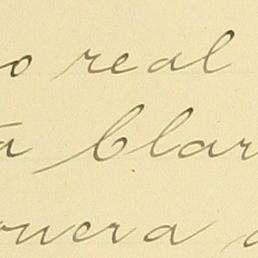 o real
a Clar
ouera a